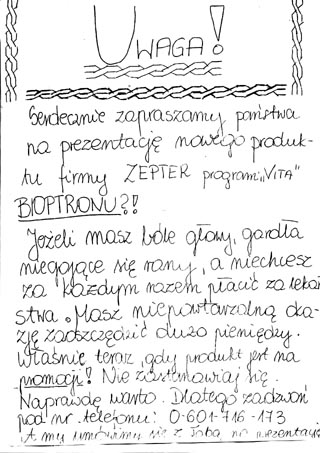 UWAGA!
Serdecznie zapraszamy państwa
na prezentację nowego produk-
tu firmy ZEPTER program "VITA"
BIOPTRONU?!
Jeżeli masz bóle głowy, gardła
niegojące się rany, a niechcesz
za każdym razem płacić za lekar
stwa. Masz niepowtarzalną oka-
zję zaoszczędzić dużo pieniędzy.
Właśnie teraz, gdy produkt jest na
promocji! Nie zastanawiaj się.
Naprawdę warto. Dlatego zadzwoń
pod nr. telefonu: 0-601-716-173
A my umówimy się z Tobą na prezentację